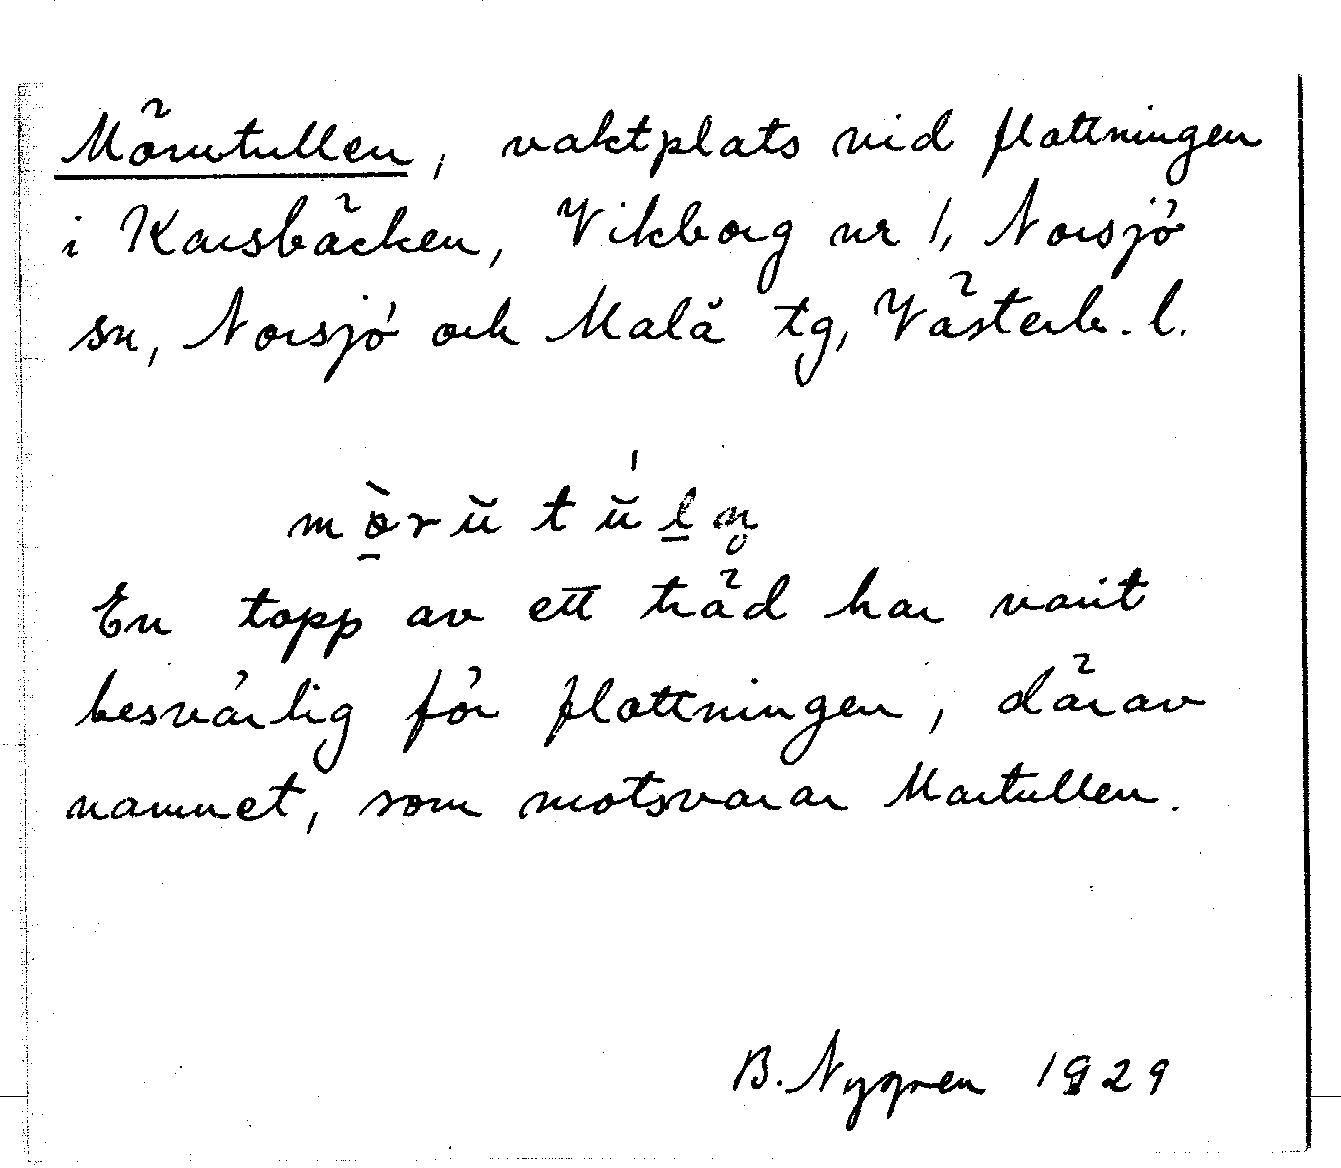 Mörutullen, vaktplats vid flottningen
i Karsbäcken, Vikborg nr 1, Norsjö
sn, Norsjö och Malå tg, Västerb. l.
mø̀rŭ tŭ́ln̥
En topp av ett träd har varit
besvärlig för flottningen, därav
namnet, som motsvarar Martullen.
B. Nygren 1929